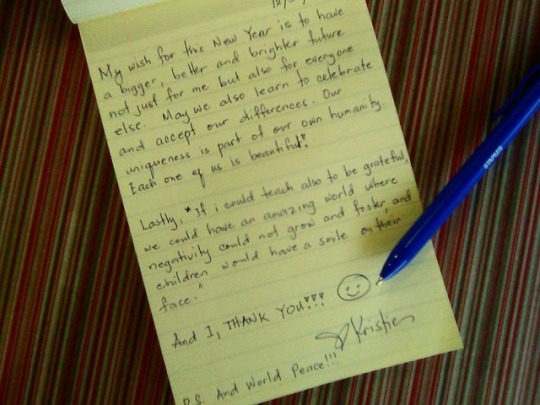 My wish for this New Year is to have
a bigger, better and brighter future
not just for me but also for everyone
else. May we also learn to celebrate
and accept our differences. Our
uniqueness is part of our own humanity.
Each one of us is beautiful!
Lastly, "If i could teach also to be grateful,
we could have an amazing world where
negativity could not grow and foster, and
children would have a smile on their
face."
And I, THANK YOU!!!
Kristien
P.S. And World Peace!!!
STAPLES